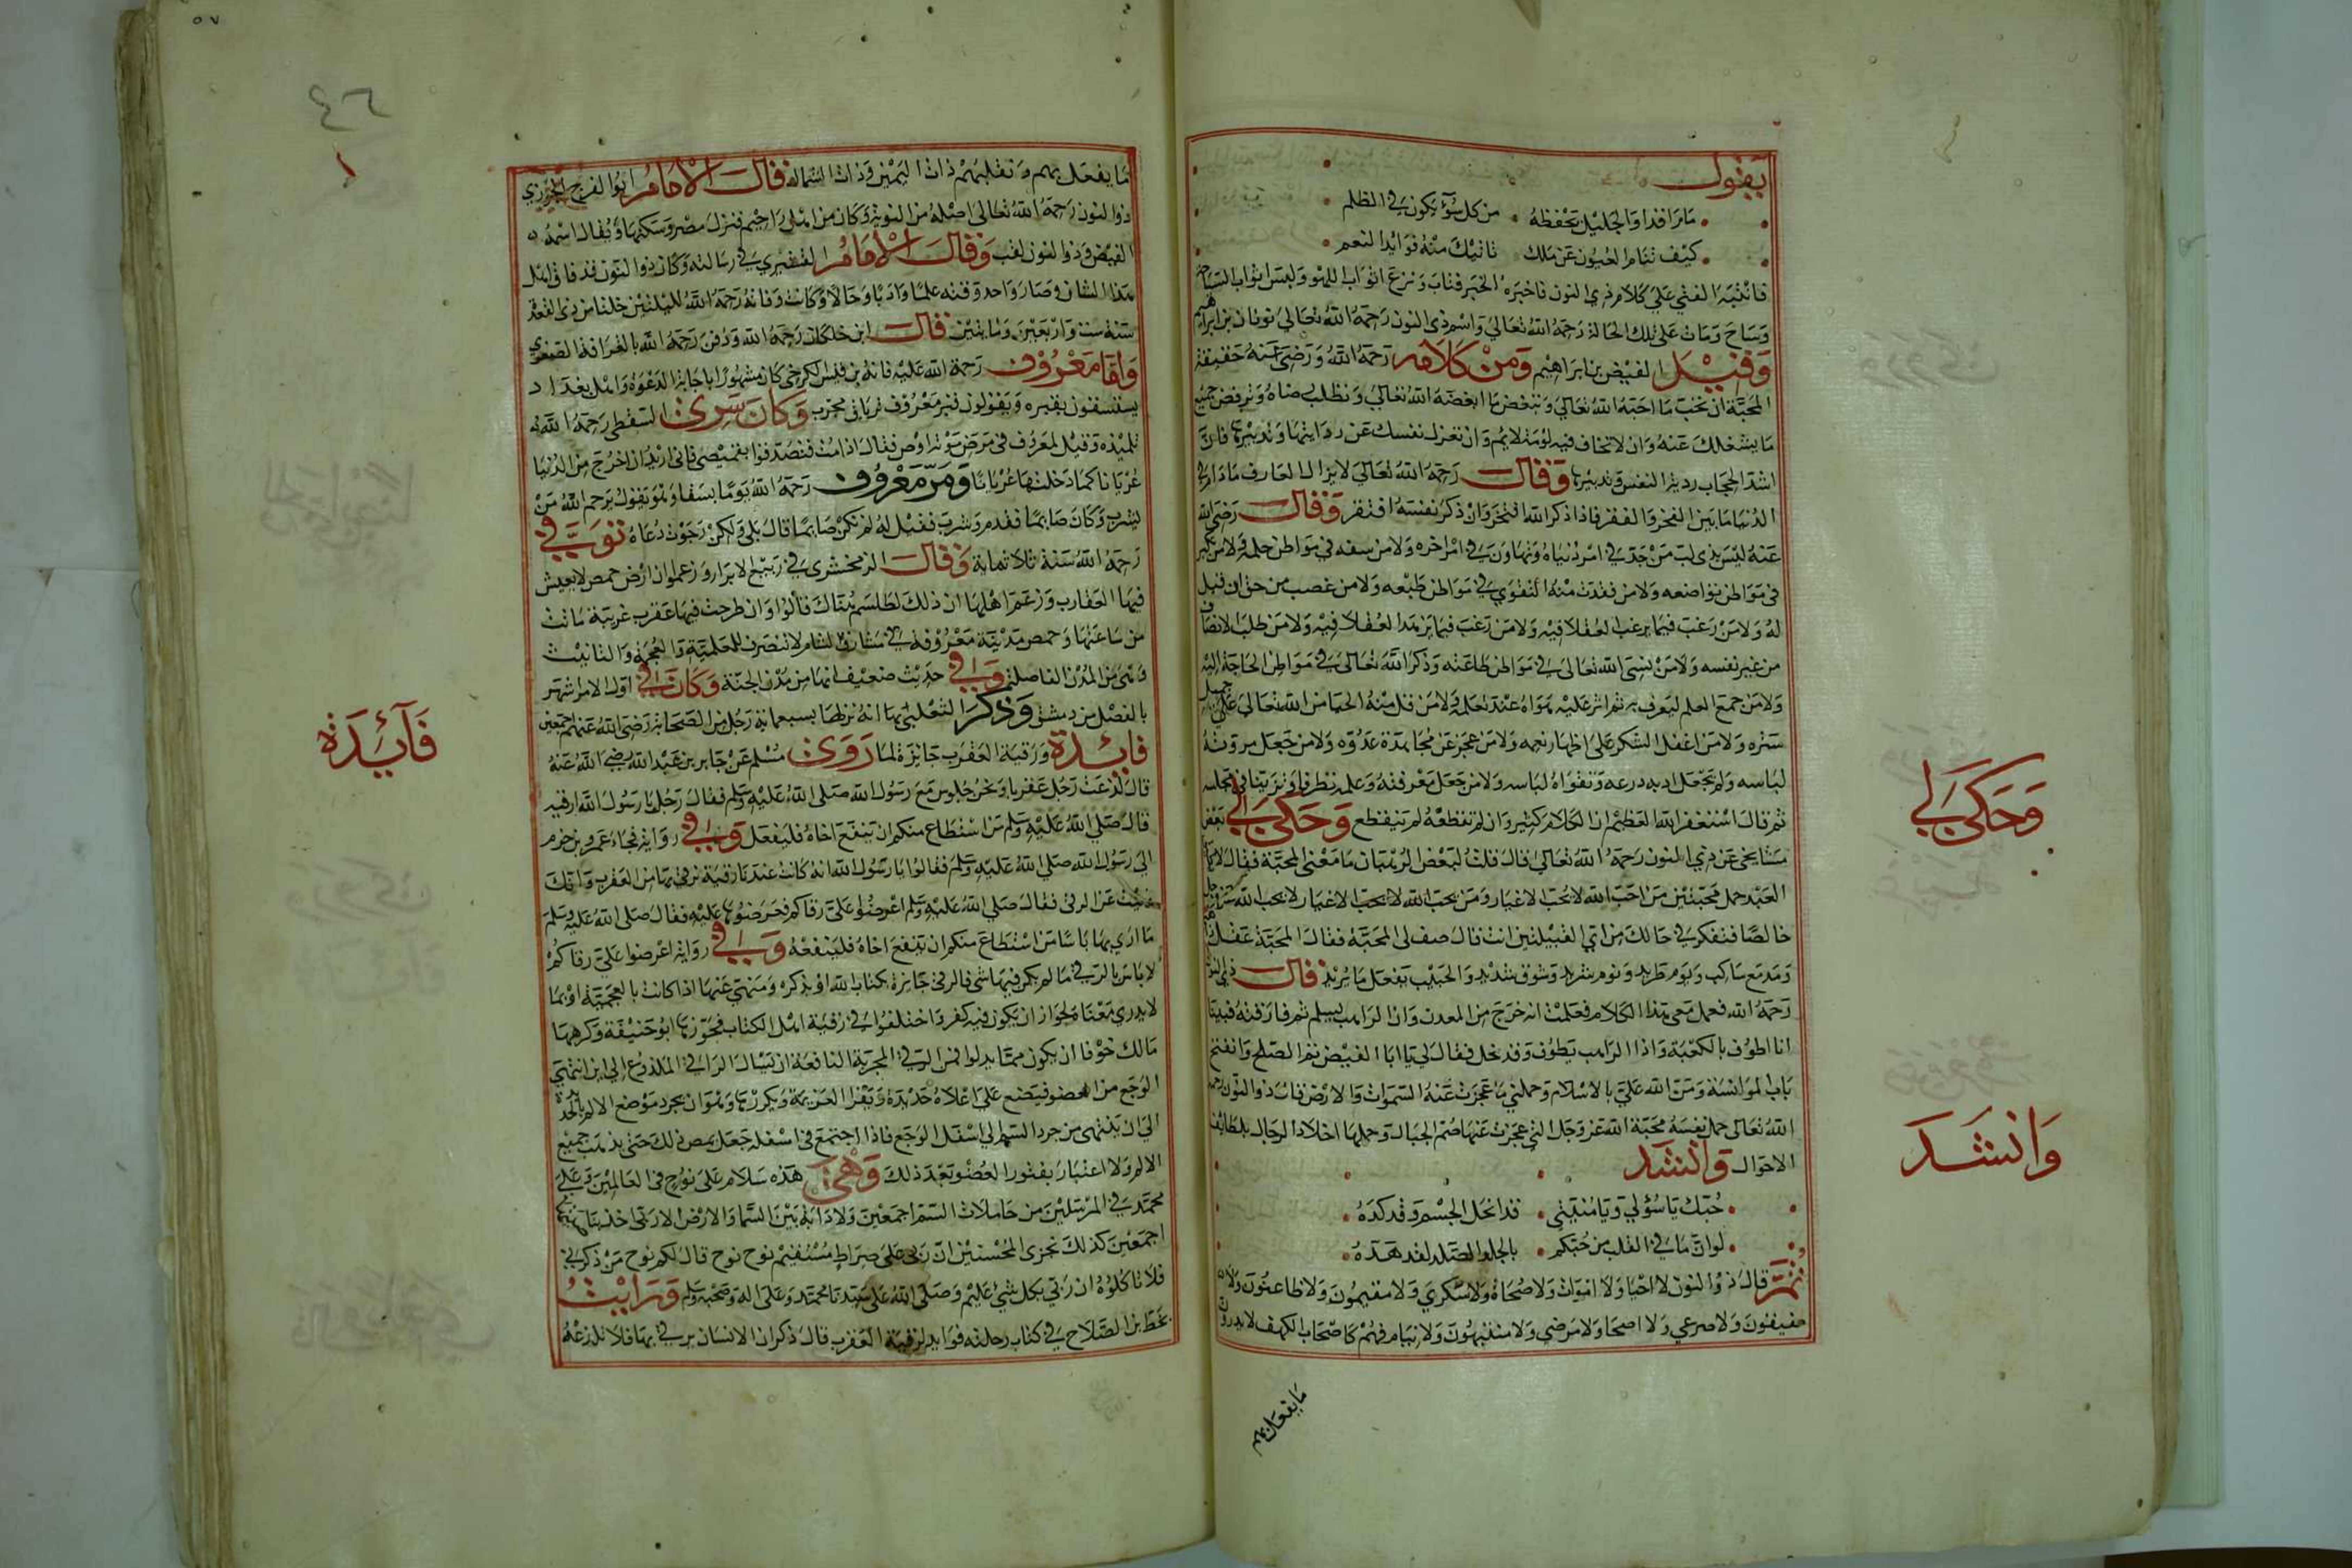 يقول
ما راقدا والجليل يحفظه من كل سوء يكون في الظلم
كيف تنام العيون عن ملك تاتيك منه فوايد النعم
فانتبه الفتي علي كلام ذي النون فاخبره الخبر فتاب ونزع اثواب اللهو ولبس اثواب السياحة
وساح ومات علي تلك الحالة رحمه الله تعالي واسم ذي النون رحمه الله تعالي ثوبان بن ابراهيم
وقيل الفيض بن ابراهيم ومن كلامه رحمه الله ورضي عنه حقيقة
المحبة ان تحب ما احبه الله تعالي وتبغض ما ابغضه الله تعالي وتطلب رضاه وترفض جميع
ما يشغلك عنه وان لا تخاف فيه لومة لايم وان تعزل نفسك عن رويتها وتدبيرها فان
اشد الحجاب روية النفس وتدبيرها وقال رحمه الله تعالي لا يزال العارف ما دام في
الدنيا ما بين الفخر والفقر فاذا ذكر الله افتخر وان ذكر نفسه افتقر وقال رضي الله
عنه ليس بذي لب من جد في امر دنياه وتهاون في امر اخره ولا من سفه في مواطن حلمه ولا من تكبر
في مواطن تواضعه ولا من فقدت منه التقوي في مواطن طبعه ولا من غصب من حق ان قيل
له ولا من رغب فيما يرغب العقلا فيه ولا من رغب فيما يزهد العقلا فيه ولا من طلب الانصاف
من غير نفسه ولا من نسي الله تعالي في مواطن طاعته وذكر الله تعالي في مواطن الحاجة اليه
ولا من جمع العلم ليعرف به ثم اثر عليه هواه عند تعلمه ولا من قل منه الحيا من الله تعالي علي جميل
ستره ولا من اغفل الشكر علي اظهار نعمه ولا من عجز عن مجاهدة عدوه ولا من جعل مروته
لباسه ولم يجعل ادبه درعه وتقواه لباسه ولا من جعل معرفته وعلمه تظرفا وتزينا في مجلسه
ثم قال استغفر الله العظيم ان الكلام كثير وان لم تقطعه لم ينقطع وحكي لي بعض
مشايخي عن ذي النون رحمه الله تعالي قال قلت لبعض الرهبان ما معني المحبة فقال لا يطيق
العبد حمل محبتين من احب الله لا يحب الاغيار ومن يحب الاغيار لا يحب الله
خالصا فتفكر في حالك من اي القبيلتين انت قال صف لي المحبة فقال المحبة عقل
ودمع ساكب ونوم طريد وشوق شديد والحبيب يفعل ما يريد قال ذو النون
رحمه الله فعمل معي هذا الكلام فعلمت انه خرج من المعدن وان الراهب يسلم ثم فارقته فبينا
انا اطوف بالكعبة واذا الراهب يطوف وقد نحل فقال لي يا ابا الفيض تم الصلح وانفتح
باب الموانسة ومن الله علي بالاسلام وحملني ما عجزت عنه السموات والارض قال ذو النون رحمه
الله تعالي حمل نفسه محبة الله عز وجل التي عجزت عنها صم الجبال وحملها اخلاد الرجال بلطايف
الاحوال وانشد
حبك يا سؤلي ويا منيتي قد انحل الجسم وقد كده
لو ان ما في القلب من حبكم بالجلمد الصلد لقد هده
ثم قال ذو النون لا احيا ولا اموات ولا صحاة ولا سكري ولا مقيمون ولا ظاعنون ولا
مفيقون ولا صرعي ولا اصحا ولا مرضي ولا منتبهون ولا نيام فهم كاصحاب الكهف لا يدرون
ما يفعل بهم
وحكي لي
وانشد
ما يفعل بهم ونقلبهم ذات اليمين وذات الشمال قال الامام ابو الفرج الجوزي
ذو النون رحمه الله تعالي اصله من النوبة وكان من اهل اخميم فنزل مصر وسكنها ويقال اسمه
الفيض وذو النون لقب وقال الامام القشيري في رسالته وكان ذو النون قد فاق اهل
هذا الشان وصار واحد وقته علما وادبا وحالا وكانت وفاته رحمه الله لليلتين خلتا من ذي القعدة
سنة ست واربعين ومايتين قال ابن خلكان رحمه الله ودفن رحمه الله بالقرافة الصغري
واما معروف رحمة الله عليه فانه بن قيس الكرخي كان مشهورا باجابة الدعوة واهل بغداد
يستسقون بقبره ويقولون قبر معروف ترياق مجرب وكان سري السقطي رحمه الله
تلميذه وقيل لمعروف في مرض موته اوص فقال اذا مت فتصدقوا بقميصي فاني اريد ان اخرج من الدنيا
عريانا كما دخلتها عريانا ومر معروف رحمه الله يوما بسقا وهو يقول يرحم الله من
يشرب وكان صايما فقدم وشرب فقيل له لم تكن صايما قال بلي ولكن رجوت دعاه توفي
رحمه الله سنة ثلاثماية وقال الزمخشري في ربيع الابرار وزعموا ان ارض حمص لا يعيش
فيها العقارب وزعم اهلها ان ذلك لطلسم هناك قالوا وان طرحت فيها عقرب غريبة ماتت
من ساعتها وحمص مدينة معروفة في مشارق الشام لا تنصرف للعلمية والعجمة والتانيث
وهي من المدن الفاضلة وفي حديث ضعيف انها من مدن الجنة وكان في اول الامر اشهر
بالفضل من دمشق وذكر الثعلبي انه نزلها سبعماية رجل من الصحابة رضي الله عنهم اجمعين
فايدة ورقية العقرب جايزة لما روي مسلم عن جابر بن عبد الله رضي الله عنه
قال لدغت رجل عقربا ونحن جلوس مع رسول الله صلي الله عليه وسلم فقال رجل يا رسول الله ارقيه
قال صلي الله عليه وسلم من استطاع منكم ان ينفع اخاه فليفعل وفي رواية فجاء عمرو بن حزم
الي رسول الله صلي الله عليه وسلم فقالوا يا رسول الله انه كانت عندنا رقية نرقي بها من العقرب وانك
نهيت عن الرقي فقال صلي الله عليه وسلم اعرضوا علي رقاكم فعرضوها عليه فقال صلي الله عليه وسلم
ما اري بها باسا من استطاع منكم ان ينفع اخاه فلينفعه وفي رواية اعرضوا علي رقاكم
لا باس بالرقي ما لم يكن فيها شي فالرقي جايزة بكتاب الله او بذكره ومنهي عنها اذا كانت بالعجمية او بما
لا يدري معناه لجواز ان يكون فيه كفر واختلفوا في رقية اهل الكتاب فجوزها ابو حنيفة وكرهها
مالك خوفا ان يكون مما بدلوا فمن الرقي المجربة النافعة ان يسال الراقي الملدوغ الي اين انتهي
الوجع من العضو فيضع علي اعلاه حديدة ويقرا العزيمة ويكررها وهو يجرد موضع الالم بالحديدة
الي ان ينتهي من جرد السم الي اسفل الوجع فاذا اجتمع في اسفله جعل يمص ذلك حتي يذهب جميع
الالم ولا اعتبار بفتور العضو بعد ذلك وهي هذه سلام علي نوح في العالمين وعلي
محمد في المرسلين من حاملات السم اجمعين ولا دابة بين السما والارض الا ربي اخذ بناصيتها
اجمعين كذلك نجزي المحسنين ان ربي علي صراط مستقيم نوح نوح قال لكم نوح من ذكرني
فلا تاكلوه ان ربي بكل شي عليم وصلي الله علي سيدنا محمد وعلي اله وصحبه وسلم ورايت
بخط بن الصلاح في كتاب رحلته فوايد لرقية العقرب قال ذكر ان الانسان يرقي بها فلا تلدغه
فآيدة